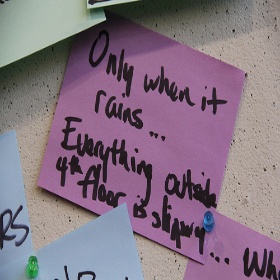 Only when it
rains...
Everything outside
4th floor is slippery
...
RS
Wh